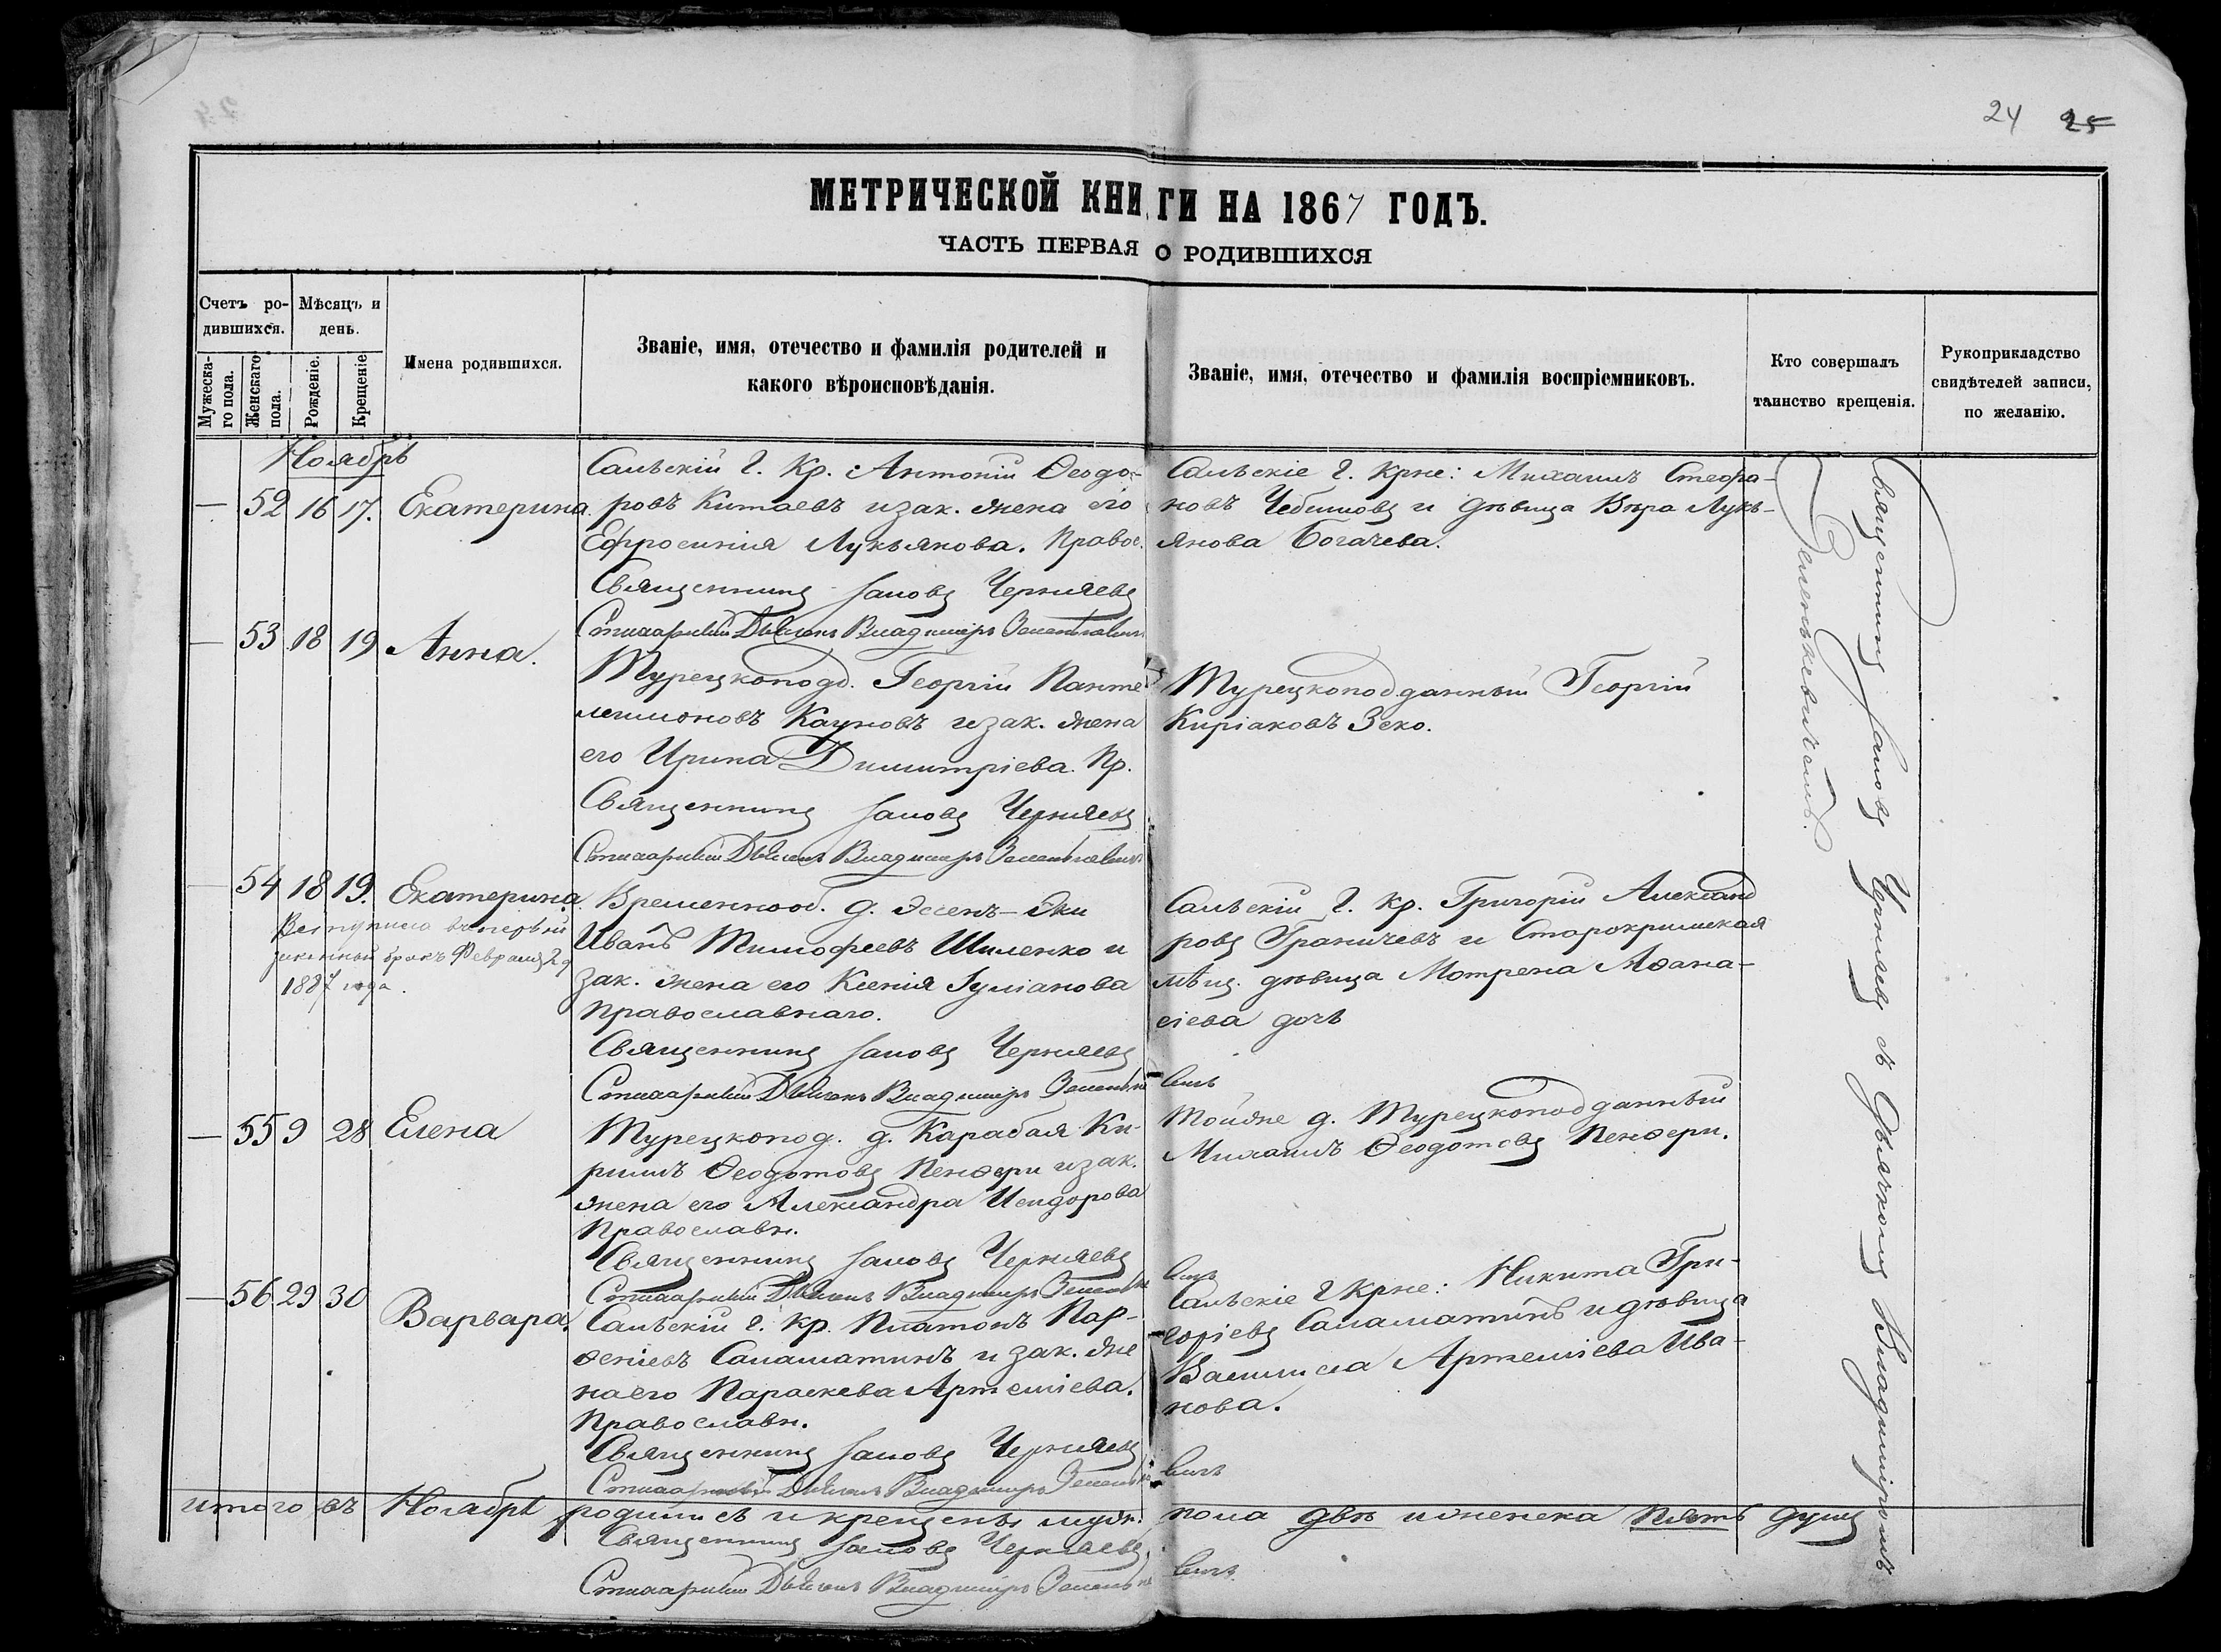 24 25
МЕТРИЧЕСКОЙ КНИГИ НА 1867 ГОДЪ.
ЧАСТЬ ПЕРВАЯ О РОДИВШИХСЯ
Счетъ родившихся.
Мужескаго пола.
Женскаго пола.
Мѣсяцъ и день.
Рожденіе.
Крещеніе
Имена родившихся.
Званіе, имя, отечество и фамилія родителей и
какого вѣроисповѣданія.
Званіе, имя, отечество и фамилія воспріемниковъ.
Кто совершалъ
таинство крещенія.
Рукоприкладство
свидѣтелей записи,
по желанію.
Ноябрь
— 52 16 17. Екатерина.
Сальскій г. Кр. Антоній Ѳеодо-
ровъ Китаевъ и зак. жена его
Ефросинія Лукьянова. Правос.
Священникъ Іаковъ Черняевъ
Стихарный Дьячекъ Владиміръ
Сальскіе г. Крне: Михаилъ Стефа-
новъ и дѣвица Вѣра Лукь-
янова Богачева.
— 53 18 19 Анна.
Турецкопод. Георгій Панте-
леимоновъ Кауновъ и зак. жена
его Ирина Димитріева. Пр.
Священникъ Іаковъ Черняевъ
Стихарный Дьячекъ Владиміръ
Турецкоподданный Георгій
Киріаковъ Зеко.
— 54 18 19. Екатерина.
Вступила въ первый
законный бракъ Февраля 2
1887 года.
Временнооб. д. Эсенъ-Эки
Иванъ Тимофеевъ Шиленко и
зак. жена его Ксенія Іуліанова
Православнаго.
Священникъ Іаковъ Черняевъ
Стихарный Дьячекъ Владиміръ
Сальскій г. Кр. Григорій Александ
ровъ Граничевъ и Старокримская
мѣщ. дѣвица Мотрена Аѳана-
сіева дочь
— 55 9 28 Елена
Турецкопод. д. Карабая Ки-
рилъ Ѳеодотовъ Пенѳери и зак.
жена его Александра Исидорова
Православн.
Священникъ Іаковъ Черняевъ
Стихарный Дьячекъ Владиміръ
Тойже д. Турецкоподданный
Михаилъ Ѳеодотовъ Пенѳери.
— 56 29 30 Варвара.
Сальскій г. Кр. Платонъ Пар-
ѳеніевъ Саламатинъ и зак. же
на его Параскева Артеміева.
Православн.
Священникъ Іаковъ Черняевъ
Стихарный Дьячекъ Владиміръ
Сальскіе г Крне: Никита Гри-
горіевъ Саламатинъ и дѣвица
Василиса Артеміева Ива-
нова.
Священникъ Іаковъ Черняевъ съ Дьячкомъ Владиміромъ
Зеленкевичемъ.
итого въ Ноябрѣ родились и крещены муж. пола двѣ и женска пять душъ
Священникъ Іаковъ Черняевъ
Стихарный Дьячекъ Владиміръ